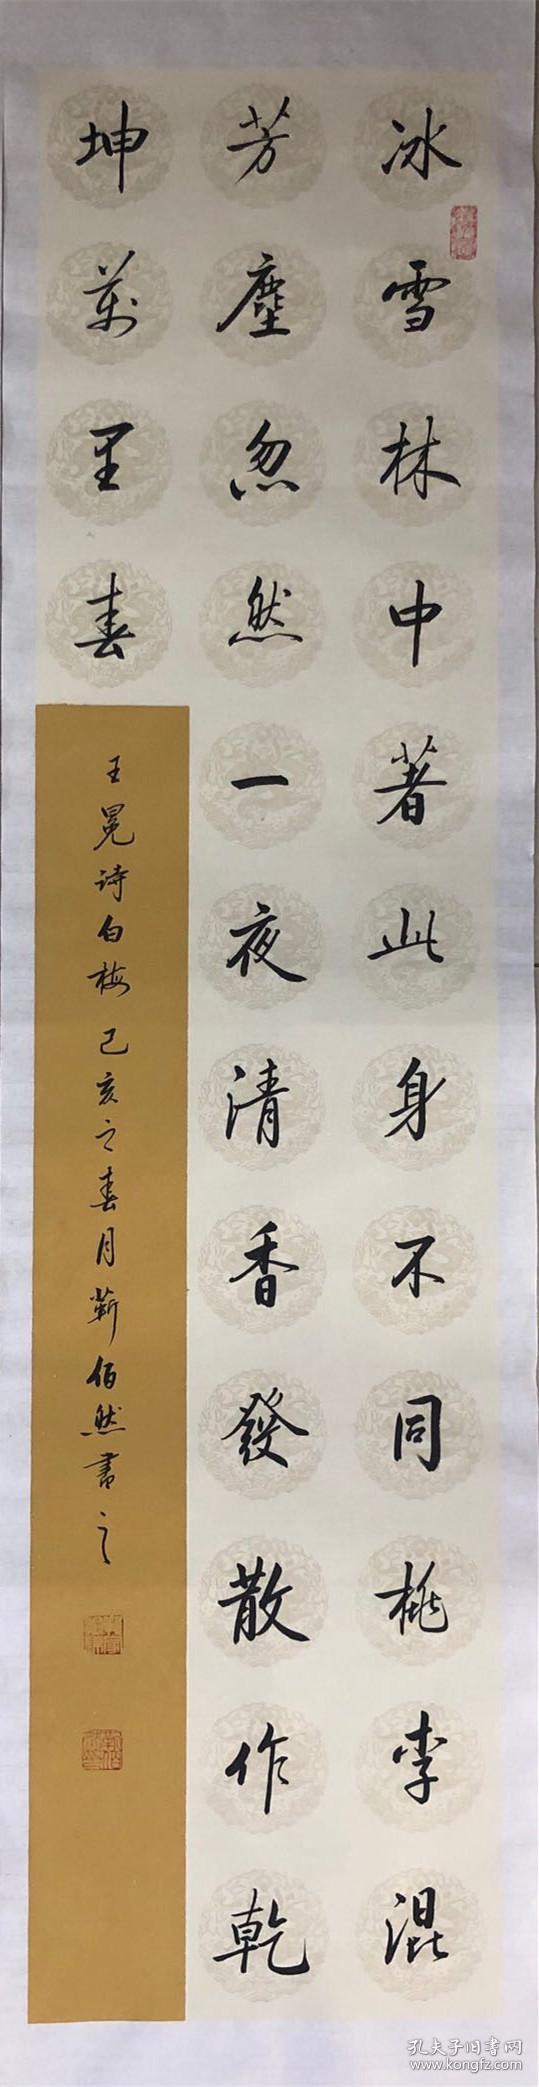 冰雪林中著此身不同桃李混
芳塵忽然一夜清香發散作乾
坤萬里春
王冕诗白梅 己亥之春月蕲佰然書之
孔夫子旧書网
www.kongfz.com